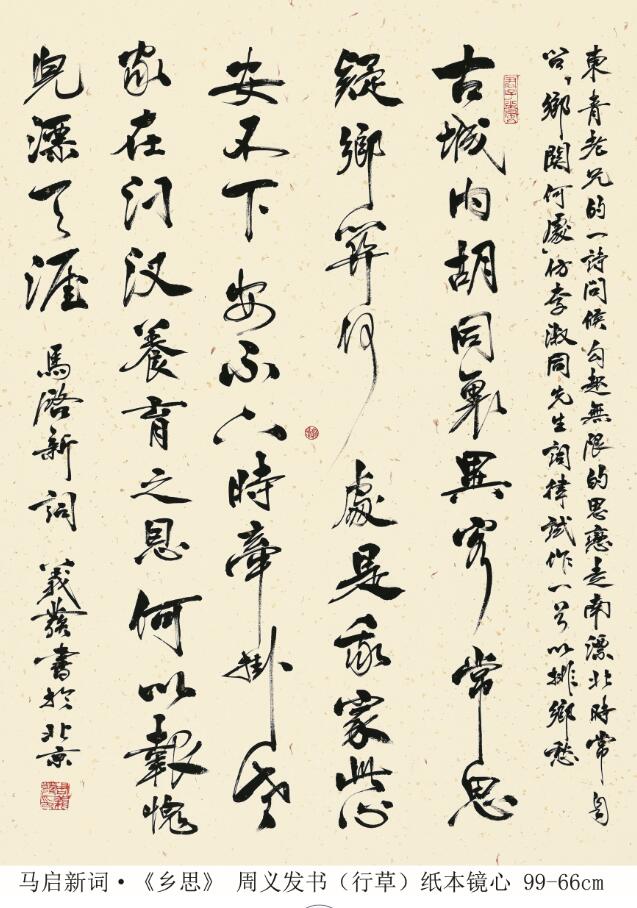 東青老兄的一詩問候勾起無限的思戀走南漂北時常自
咎，鄉関何處"仿李淑同先生詞律試作一首以排鄉愁
古城内胡同裏異客常思
疑鄉関何處是我家此心
安不下安不下時牽掛
家在汈汊養育之恩何以報愧
兒漂天涯 馬啓新詞 義發書於北京
马启新词·《乡思》 周义发书（行草）纸本镜心 99-66cm